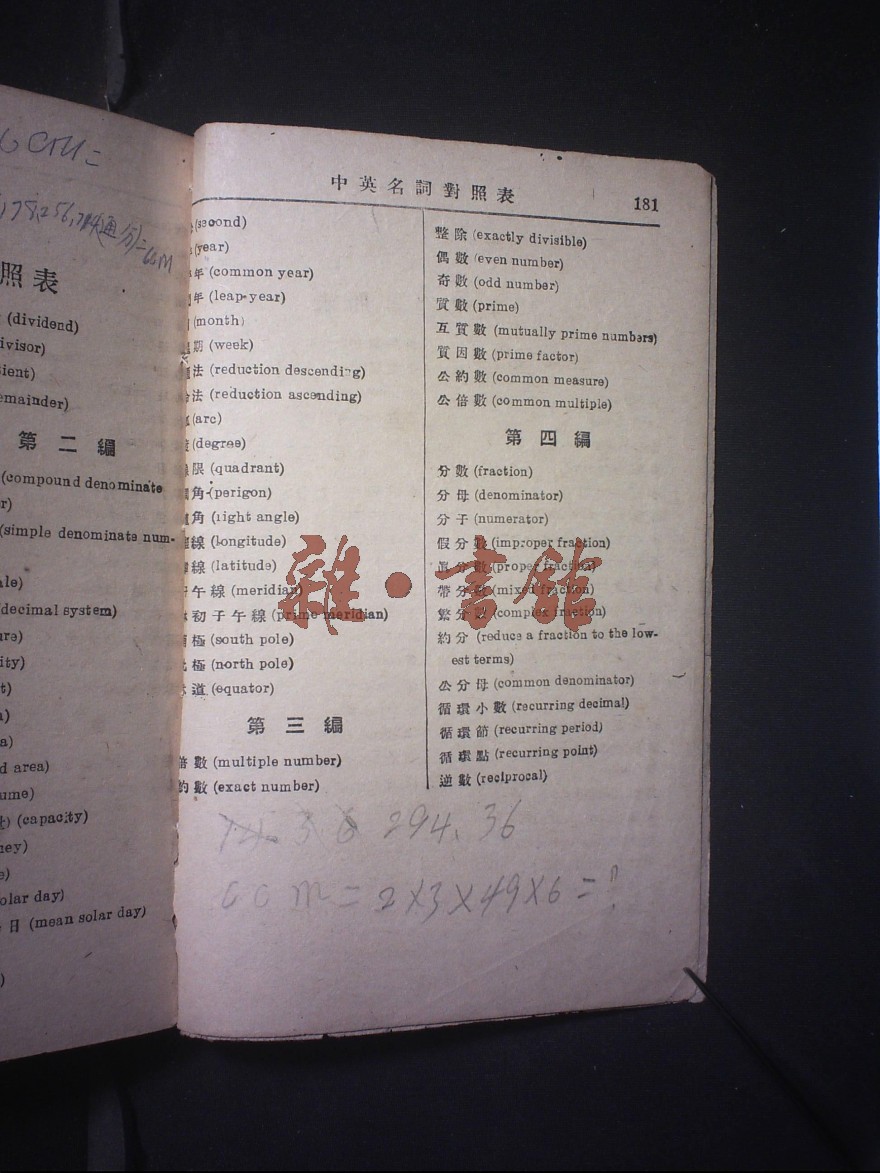 照表
(dividend)
第二編
(compound denominate
(simple denominate num-
(decimal system)
area)
(capacity)
solar day)
日 (mean solar day)
中英名詞對照表
181
(second)
(year)
年 (common year)
年 (leap-year)
(month)
期 (week)
法 (reduction descending)
法 (reduction ascending)
(arc)
(degree)
限 (quadrant)
角 (perigon)
角 (right angle)
線 (longitude)
線 (latitude)
午線 (meridian)
初子午線 (prime meridian)
極 (south pole)
極 (north pole)
道 (equator)
第三編
倍數 (multiple number)
約數 (exact number)
整除 (exactly divisible)
偶數 (even number)
奇數 (odd number)
質數 (prime)
互質數 (mutually prime numbers)
質因數 (prime factor)
公約數 (common measure)
公倍數 (common multiple)
第四編
分數 (fraction)
分母 (denominator)
分子 (numerator)
假分數 (improper fraction)
眞分數 (proper fraction)
帶分數 (mixed fraction)
繁分數 (complex fraction)
約分 (reduce a fraction to the low-
est terms)
公分母 (common denominator)
循環小數 (recurring decimal)
循環節 (recurring period)
循環點 (recurring point)
逆數 (reciprocal)
294.36
M = 2×3×49×6 = ?
雜·書館